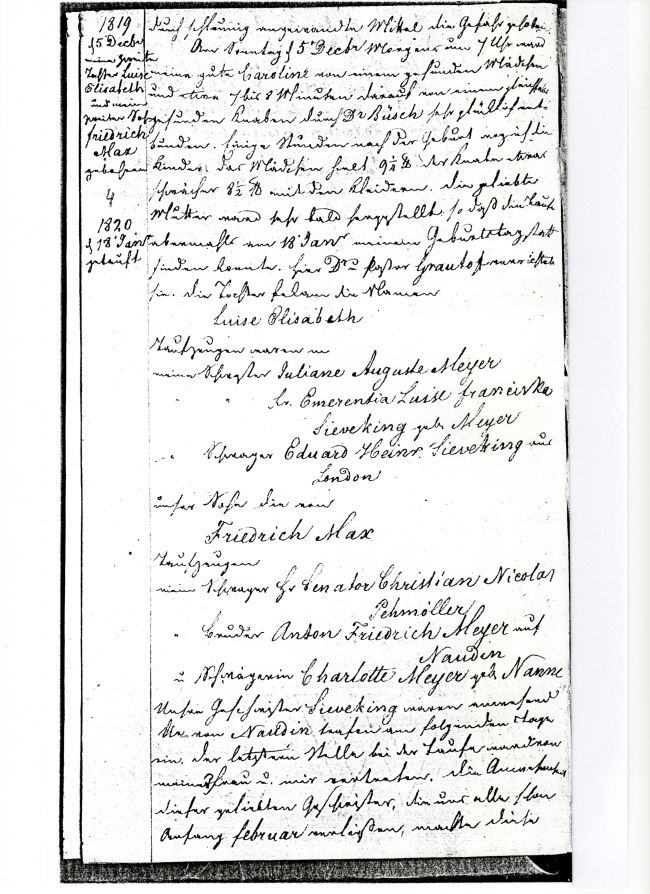 1819
d 5 Decbr
meine zweite
Tochter Luise
Elisabeth
und mein
zweiter Sohn
Friedrich
Max
geboren
4
1820
d 18 Janr
getauft
durch schleunig angewandte Mittel die Gefahr gehoben.
Am Sonntag d 5 Decbr Morgens um 7 Uhr ward
meine gute Caroline von einem gesunden Mädchen
und etwa 7 bis 8 Minuten darauf von einem gleichfalls
gesunden Knaben durch Dr Büsch sehr glücklich ent-
bunden. Einige Stunden nach der Geburt wog ich die
Kinder, das Mädchen hielt 9 1/4 ℔ der Knabe etwas
schwächer 8 1/2 ℔ mit den Kleidern. Die geliebte
Mutter ward sehr bald hergestellt, so daß die Taufe
abermahls am 18 Janr meinem Geburtstag statt
finden konnte. Hier Dr u Pastor Grautoff verrichtete
sie. Die Tochter bekam die Namen
Luise Elisabeth
Taufzeugen waren
meine Schwester Juliane Auguste Meyer
" " Emerentia Luise Franciska
Sieveking geb. Meyer
" Schwager Eduard Heinr. Sieveking aus
London
unser Sohn die von
Friedrich Max
Taufzeugen
mein Schwager Hr Senator Christian Nicolas
Pehmöller
" Bruder Anton Friedrich Meyer auf
Naudin
u Schwägerin Charlotte Meyer geb. Nanne
Unsere Geschwister Sieveking waren anwesend
die von Naudin trafen am folgenden Tage
ein, der letztern Stelle bei der Taufe ward von
meiner Frau u. mir vertreten. Die Anwesenheit
dieser geliebten Geschwister, die uns alle schon
Anfang Februar verließen, machte diese